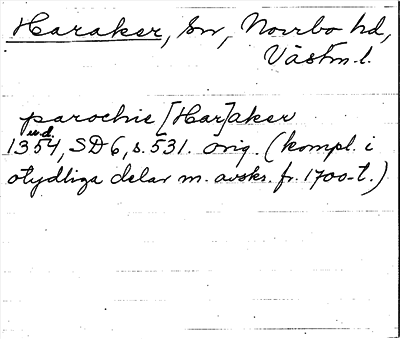 Haraker, sn, Norrbo hd,
Västm. l.
parochie [Har]aker
u.d.
1354, SD 6, s. 531. orig. (kompl. i
otydliga delar m. avskr. fr. 1700-t.)